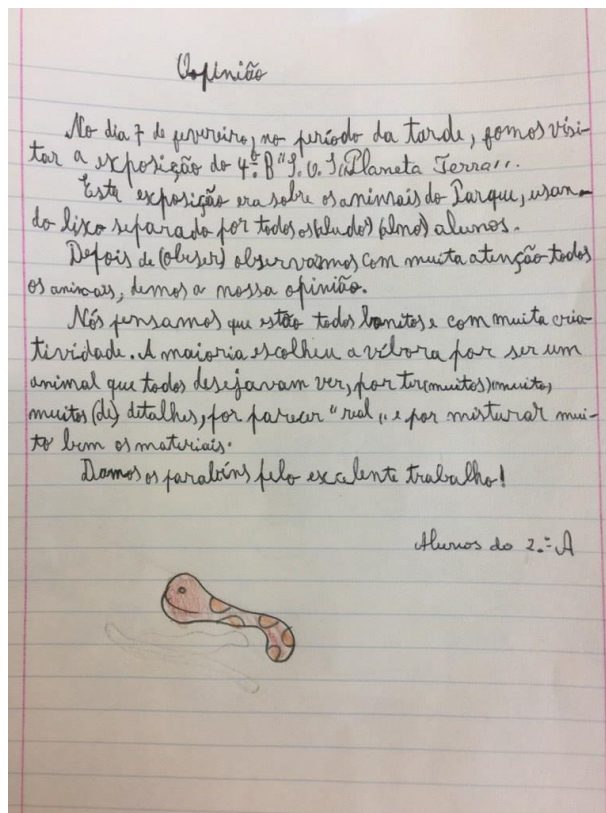 Oopinião
No dia 7 de fevereiro, no período da tarde, fomos visi-
tar a exposição do 4.º B "S. O. S. Planeta Terra".
Esta exposição era sobre os animais do Parque, usan-
do lixo separado por todos os (aludos) (alnos) alunos.
Depois de (obeser) observarmos com muita atenção todos
os animais, demos a nossa opinião.
Nós pensamos que estão todos bonitos e com muita cria-
tividade. A maioria escolheu a víbora por ser um
animal que todos desejavam ver, por ter (muitos) muitos,
muitos (de) detalhes, por parecer "real" e por misturar mui-
to bem os materiais.
Damos os parabéns pelo excelente trabalho!
Alunos do 2.º A